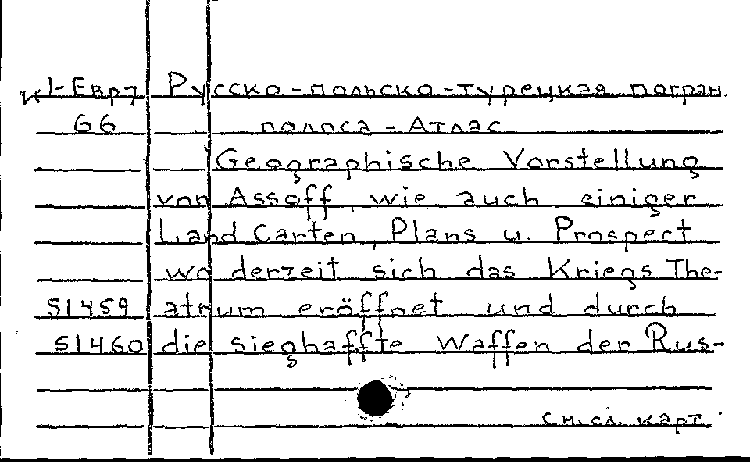 К1-Евр7 Русско-польско-турецкая погран.
G6 полоса - Атлас
Geographische Vorstellung
von Assoff, wie auch einiger
Land Carten, Plans u. Prospect
wo derzeit sich das Kriegs The-
51459 atrum eröffnet und durch
51460 die sieghaffte Waffen der Rus-
см. сл. карт.